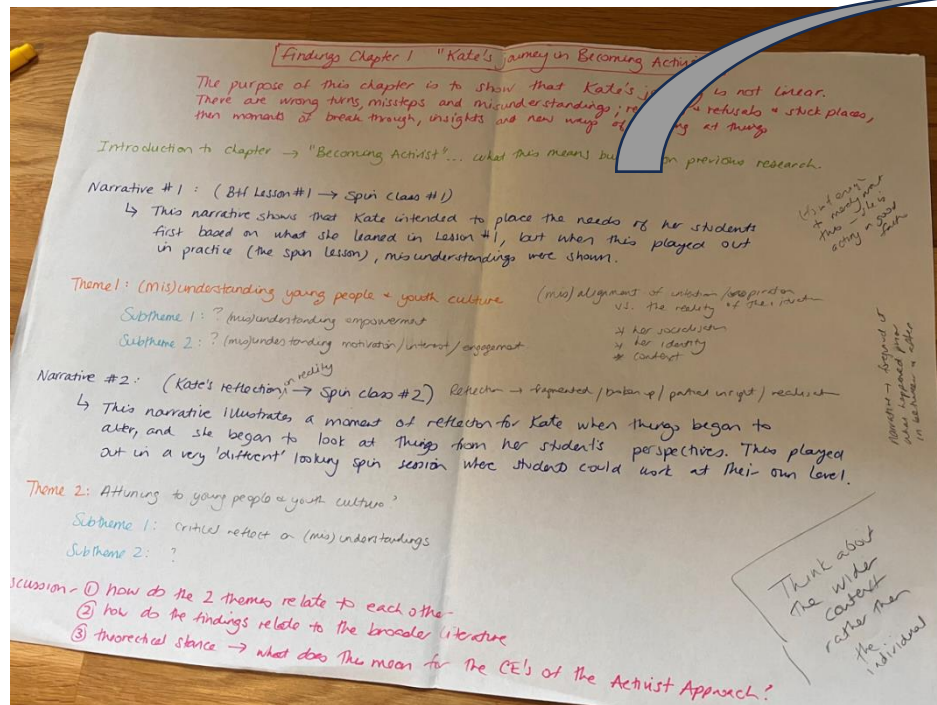 Findings Chapter 1 "Kate's journey in Becoming Activi
The purpose of this chapter is to show that Kate's is not linear.
There are wrong turns, missteps and misunderstandings; refusals & stuck places,
then moments of break through, insights and new ways of at things
Introduction to chapter → "Becoming Activist"... what this means on previous research.
Narrative #1 : ( Lesson #1 → Spin Class #1)
↳ This narrative shows that Kate intended to place the needs of her students
first based on what she learned in Lesson #1, but when this played out
in practice (the spin lesson), misunderstandings were shown.
(it's not enough
to merely want
this - she is
acting in good
faith
Theme 1: (mis)understanding young people & youth culture
(mis)alignment of intention/
vs. the reality of the situation
Subtheme 1: ? (mis)understanding empowerment
Subtheme 2: ? (mis)understanding motivation/interest/engagement
* her socialisation
* her identity
* context
Narrative #2: (Kate's reflection, in reality → Spin class #2) Reflection → fragmented / / partial insight /
↳ This narrative illustrates a moment of reflection for Kate when things began to
alter, and she began to look at things from her student's perspectives. This played
out in a very 'different' looking spin session where students could work at their own level.
Narrative →
what happened prior
in between & after
Theme 2: Attuning to young people & youth culture
Subtheme 1: critical reflect on (mis)understandings
Subtheme 2: ?
scussion - ① how do the 2 themes relate to each other
② how do the findings relate to the broader literature
③ theorectical stance → what does this mean for the CE's of the Activist Approach?
Think about
the wider
context
rather then
the
individual